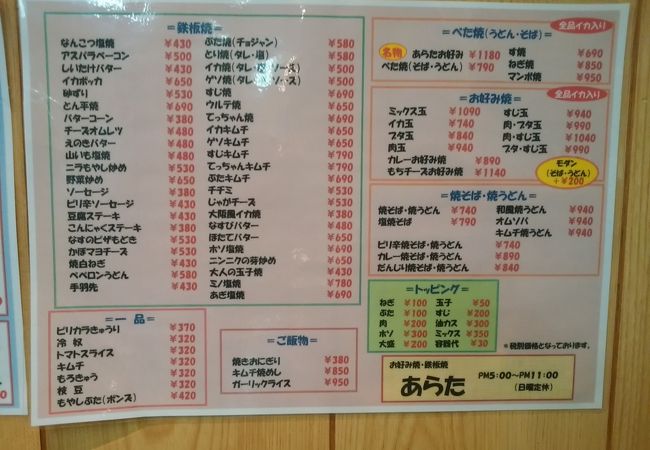 ＝鉄板焼＝
なんこつ塩焼 ¥430
アスパラベーコン ¥500
しいたけバター ¥430
イカポッカ ¥650
砂ずり ¥530
とん平焼 ¥690
バターコーン ¥380
チーズオムレツ ¥480
えのきバター ¥480
山いも塩焼 ¥480
ニラもやし炒め ¥530
野菜炒め ¥650
ソーセージ ¥380
ピリ辛ソーセージ ¥430
豆腐ステーキ ¥430
こんにゃくステーキ ¥380
なすのピザもどき ¥530
かぼマヨチーズ ¥530
焼白ねぎ ¥430
ペペロンうどん ¥580
手羽先 ¥430
ぶた焼(チョジャン) ¥580
とり焼(タレ・塩) ¥580
イカ焼
ゲソ焼
すじ焼 ¥690
ウルテ焼 ¥650
てっちゃん焼 ¥690
イカキムチ ¥650
ゲソキムチ ¥650
すじキムチ ¥790
てっちゃんキムチ ¥790
ぶたキムチ ¥690
チヂミ ¥530
じゃがチーズ ¥530
大阪風イカ焼 ¥380
なすびバター ¥480
ほたてバター ¥650
ホソ塩焼 ¥650
ニンニクの芽炒め ¥650
大人の玉子焼 ¥430
ミノ塩焼 ¥780
あぎ塩焼 ¥690
＝一品＝
ピリカラきゅうり ¥370
冷奴 ¥320
トマトスライス ¥320
キムチ ¥320
もろきゅう ¥320
枝豆 ¥320
もやしぶた(ポンズ) ¥420
＝ご飯物＝
焼きおにぎり ¥380
キムチ焼めし ¥850
ガーリックライス ¥950
＝べた焼(うどん・そば)＝
全品イカ入り
名物
あらたお好み ¥1180
べた焼(そば・うどん) ¥790
す焼 ¥690
ねぎ焼 ¥850
マンボ焼 ¥950
＝お好み焼＝
全品イカ入り
ミックス玉 ¥1090
イカ玉 ¥740
ブタ玉 ¥840
肉玉 ¥940
カレーお好み焼 ¥890
もちチーズお好み焼 ¥1140
すじ玉 ¥940
肉・ブタ玉 ¥990
肉・すじ玉 ¥1040
ブタ・すじ玉 ¥990
モダン
(そば・うどん)
＋¥200
＝焼そば・焼うどん＝
焼そば・焼うどん ¥740
塩焼そば ¥790
和風焼うどん ¥940
オムソバ ¥940
キムチ焼うどん ¥940
ピリ辛焼そば・焼うどん ¥740
カレー焼そば・焼うどん ¥890
だんじり焼そば・焼うどん ¥840
＝トッピング＝
ねぎ ¥100
ぶた ¥100
肉 ¥200
ホソ ¥300
大盛 ¥200
玉子 ¥50
すじ ¥200
油カス ¥300
ミックス ¥350
容器代 ¥30
＊税別価格となっております。
お好み焼・鉄板焼
あらた
PM5:00～PM11:00
(日曜定休)